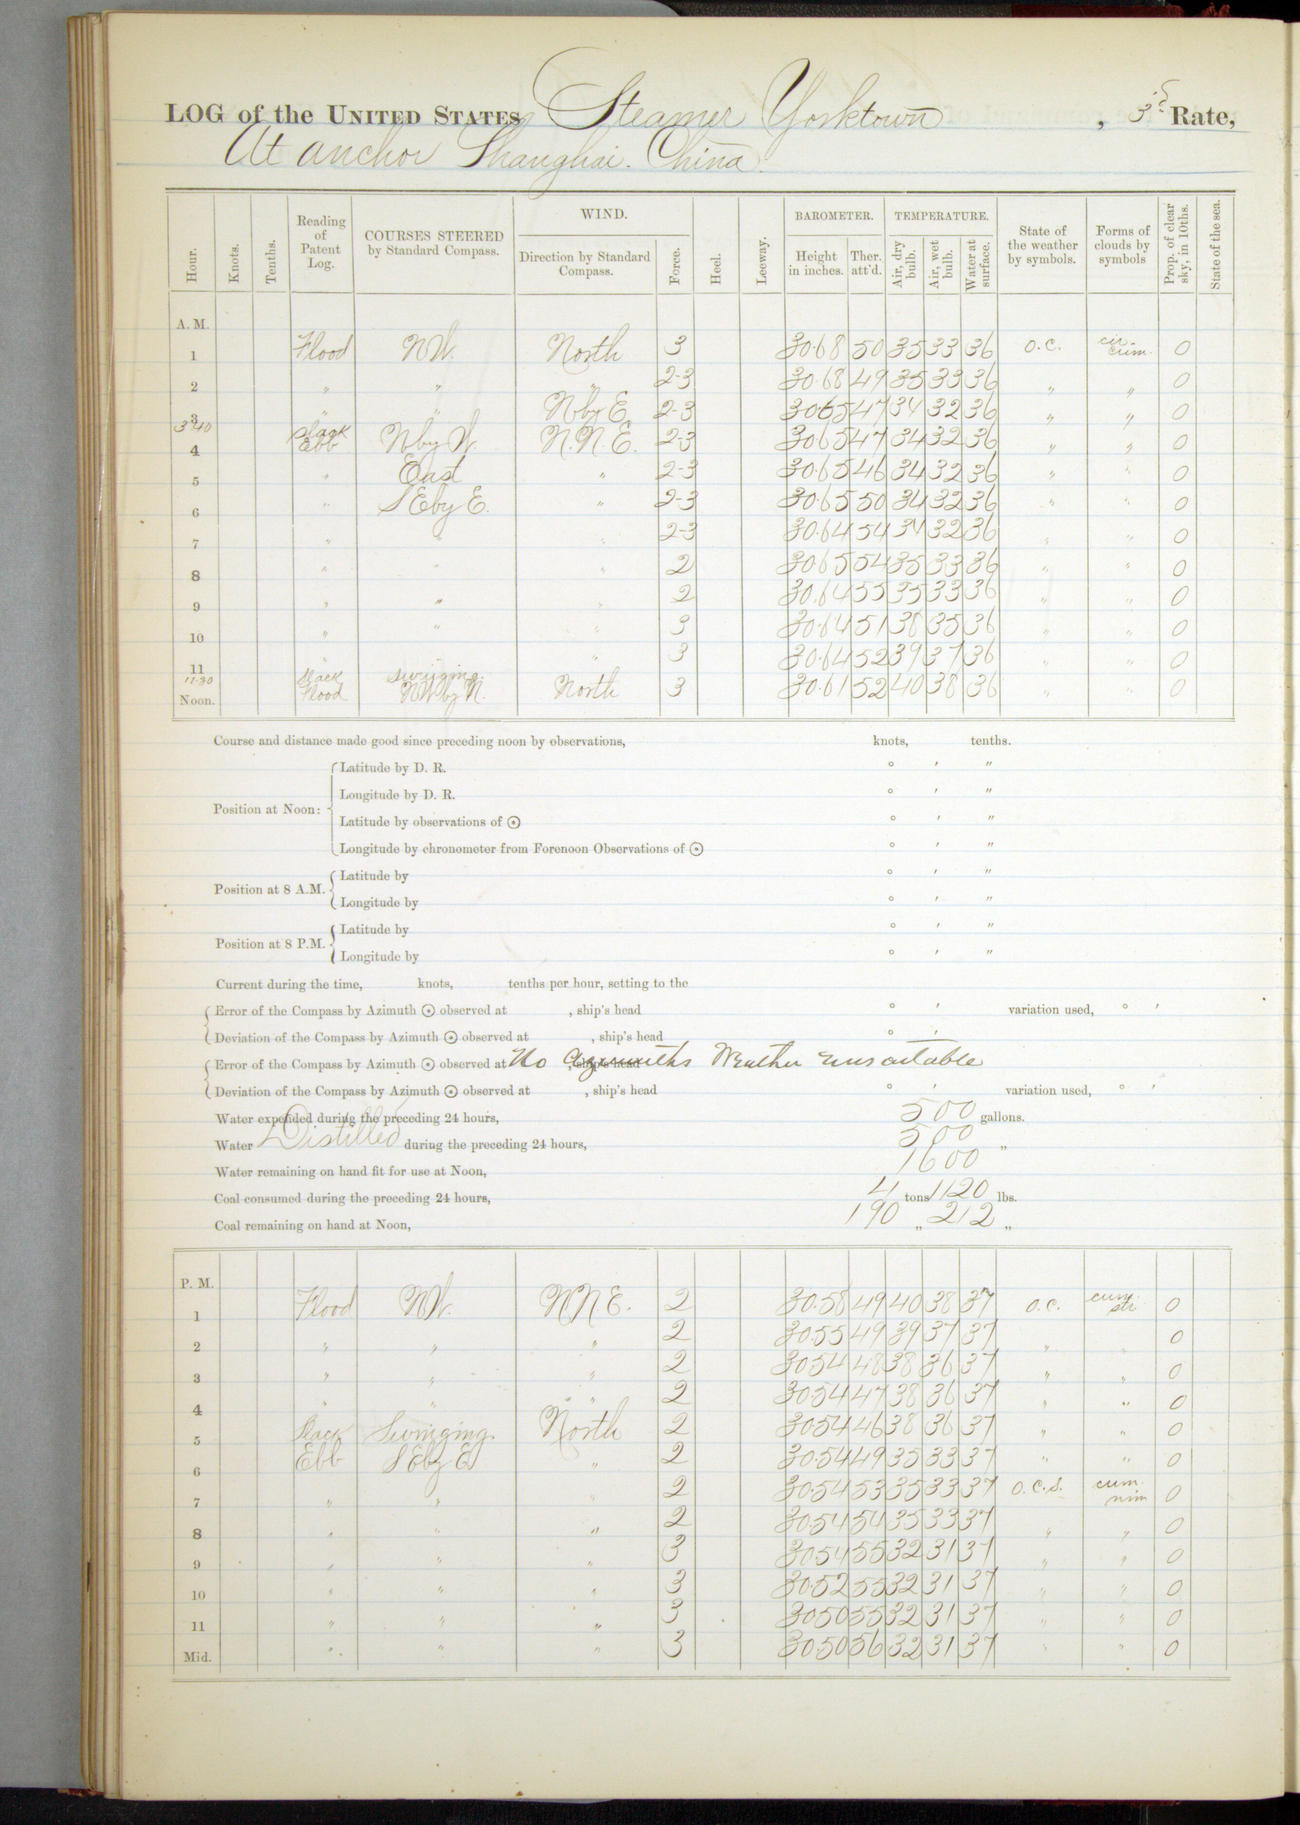 LOG of the UNITED STATES Steamer Yorktown, 3d Rate,
At anchor Shanghai. China.
Hour. Knots. Tenths. Reading of Patent Log. COURSES STEERED by Standard Compass. WIND. Direction by Standard Compass. Force. Heel. Leeway. BAROMETER. Height in inches. Ther. att'd. TEMPERATURE. Air, dry bulb. Air, wet bulb. Water at surface. State of the weather by symbols. Forms of clouds by symbols Prop. of clear sky, in 10ths. State of the sea.
A. M.
1 Flood NW. North 3 30.68 50 35 33 36 o.c. cir-cum. 0
2 " " " 2-3 30.68 49 35 33 36 " " 0
3 " " N by E 2-3 30.65 47 34 32 36 " " 0
3.40 Slack
4 Ebb N by W. N.N.E. 2-3 30.65 47 34 32 36 " " 0
5 " East " 2-3 30.65 46 34 32 36 " " 0
6 " SE by E. " 2-3 30.65 50 34 32 36 " " 0
7 " " " 2-3 30.64 54 34 32 36 " " 0
8 " " " 2 30.65 54 35 33 36 " " 0
9 " " " 2 30.64 55 35 33 36 " " 0
10 " " " 3 30.64 51 38 35 36 " " 0
11 " " " 3 30.64 52 39 37 36 " " 0
11.30 Slack Swinging
Noon. Flood NW by N. North 3 30.61 52 40 38 36 " " 0
Course and distance made good since preceding noon by observations, knots, tenths.
Position at Noon: Latitude by D. R. ° ′ ″
Longitude by D. R. ° ′ ″
Latitude by observations of ☉ ° ′ ″
Longitude by chronometer from Forenoon Observations of ☉ ° ′ ″
Position at 8 A.M. Latitude by ° ′ ″
Longitude by ° ′ ″
Position at 8 P.M. Latitude by ° ′ ″
Longitude by ° ′ ″
Current during the time, knots, tenths per hour, setting to the
Error of the Compass by Azimuth ☉ observed at , ship's head ° ′ variation used, ° ′
Deviation of the Compass by Azimuth ☉ observed at , ship's head ° ′
Error of the Compass by Azimuth ☉ observed at No azimuths Weather unsuitable , ship's head
Deviation of the Compass by Azimuth ☉ observed at , ship's head ° ′ variation used, ° ′
Water expended during the preceding 24 hours, 500 gallons.
Water Distilled during the preceding 24 hours, 500 "
Water remaining on hand fit for use at Noon, 1600
Coal consumed during the preceding 24 hours, 4 tons 1120 lbs.
Coal remaining on hand at Noon, 190 " 212 "
P. M.
1 Flood NW. NNE. 2 30.58 49 40 38 37 o.c. cum. str 0
2 " " " 2 30.55 49 39 37 37 " " 0
3 " " " 2 30.54 48 38 36 37 " " 0
4 " " " 2 30.54 47 38 36 37 " " 0
5 Slack Swinging. North 2 30.54 46 38 36 37 " " 0
6 Ebb SE by E " 2 30.54 49 35 33 37 " " 0
7 " " " 2 30.54 53 35 33 37 o.c.s. cum. nim 0
8 " " " 2 30.54 54 35 33 37 " " 0
9 " " " 3 30.54 55 32 31 37 " " 0
10 " " " 3 30.52 55 32 31 37 " " 0
11 " " " 3 30.50 55 32 31 37 " " 0
Mid. " " " 3 30.50 56 32 31 37 " " 0